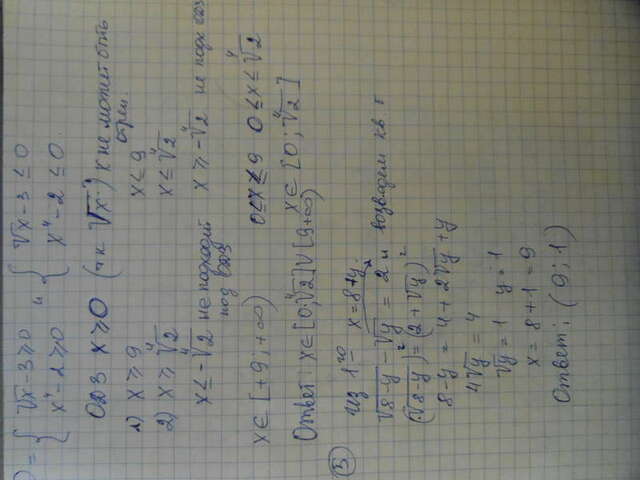 ) = { √x-3≥0 и { √x-3≤0
x⁴-2≥0 x⁴-2≤0
ОДЗ x≥0 (т.к √x) x не может быть отриц.
1) x≥9 x≤9
2) x≥⁴√2 x≤⁴√2
x≤-⁴√2 не подходит под ОДЗ x≥-⁴√2 не подх ОДЗ
x∈[+9;+∞) 0≤x≤9 0≤x≤⁴√2
Ответ: x∈[0;⁴√2]∪[9+∞) x∈[0;⁴√2]
5 из 1го x=8+y
√8-y - √y = 2 возведем в кв
(√8-y)²=(2+√y)²
8-y=4+2√y+y
4√y=4
√y=1 y=1
x=8+1=9
Ответ: (9;1)